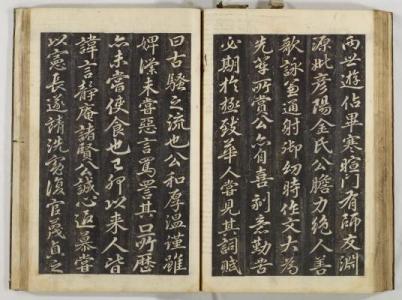 両世遊佔畢寒暄門有師友淵
源此彦陽金氏公膽力絶人善
歌詠通射御幼時作文大為
先輩所賞公亦自喜刻意勤苦
必期於極致華人嘗見其詞賦
曰古騷之流也公和厚溫謹雖
婢僕未嘗惡言罵詈其口所歷
亦未嘗使食也己卯以来人皆
諱言靜庵諸賢公誠心追慕嘗
以憲長遂請洗冤復官